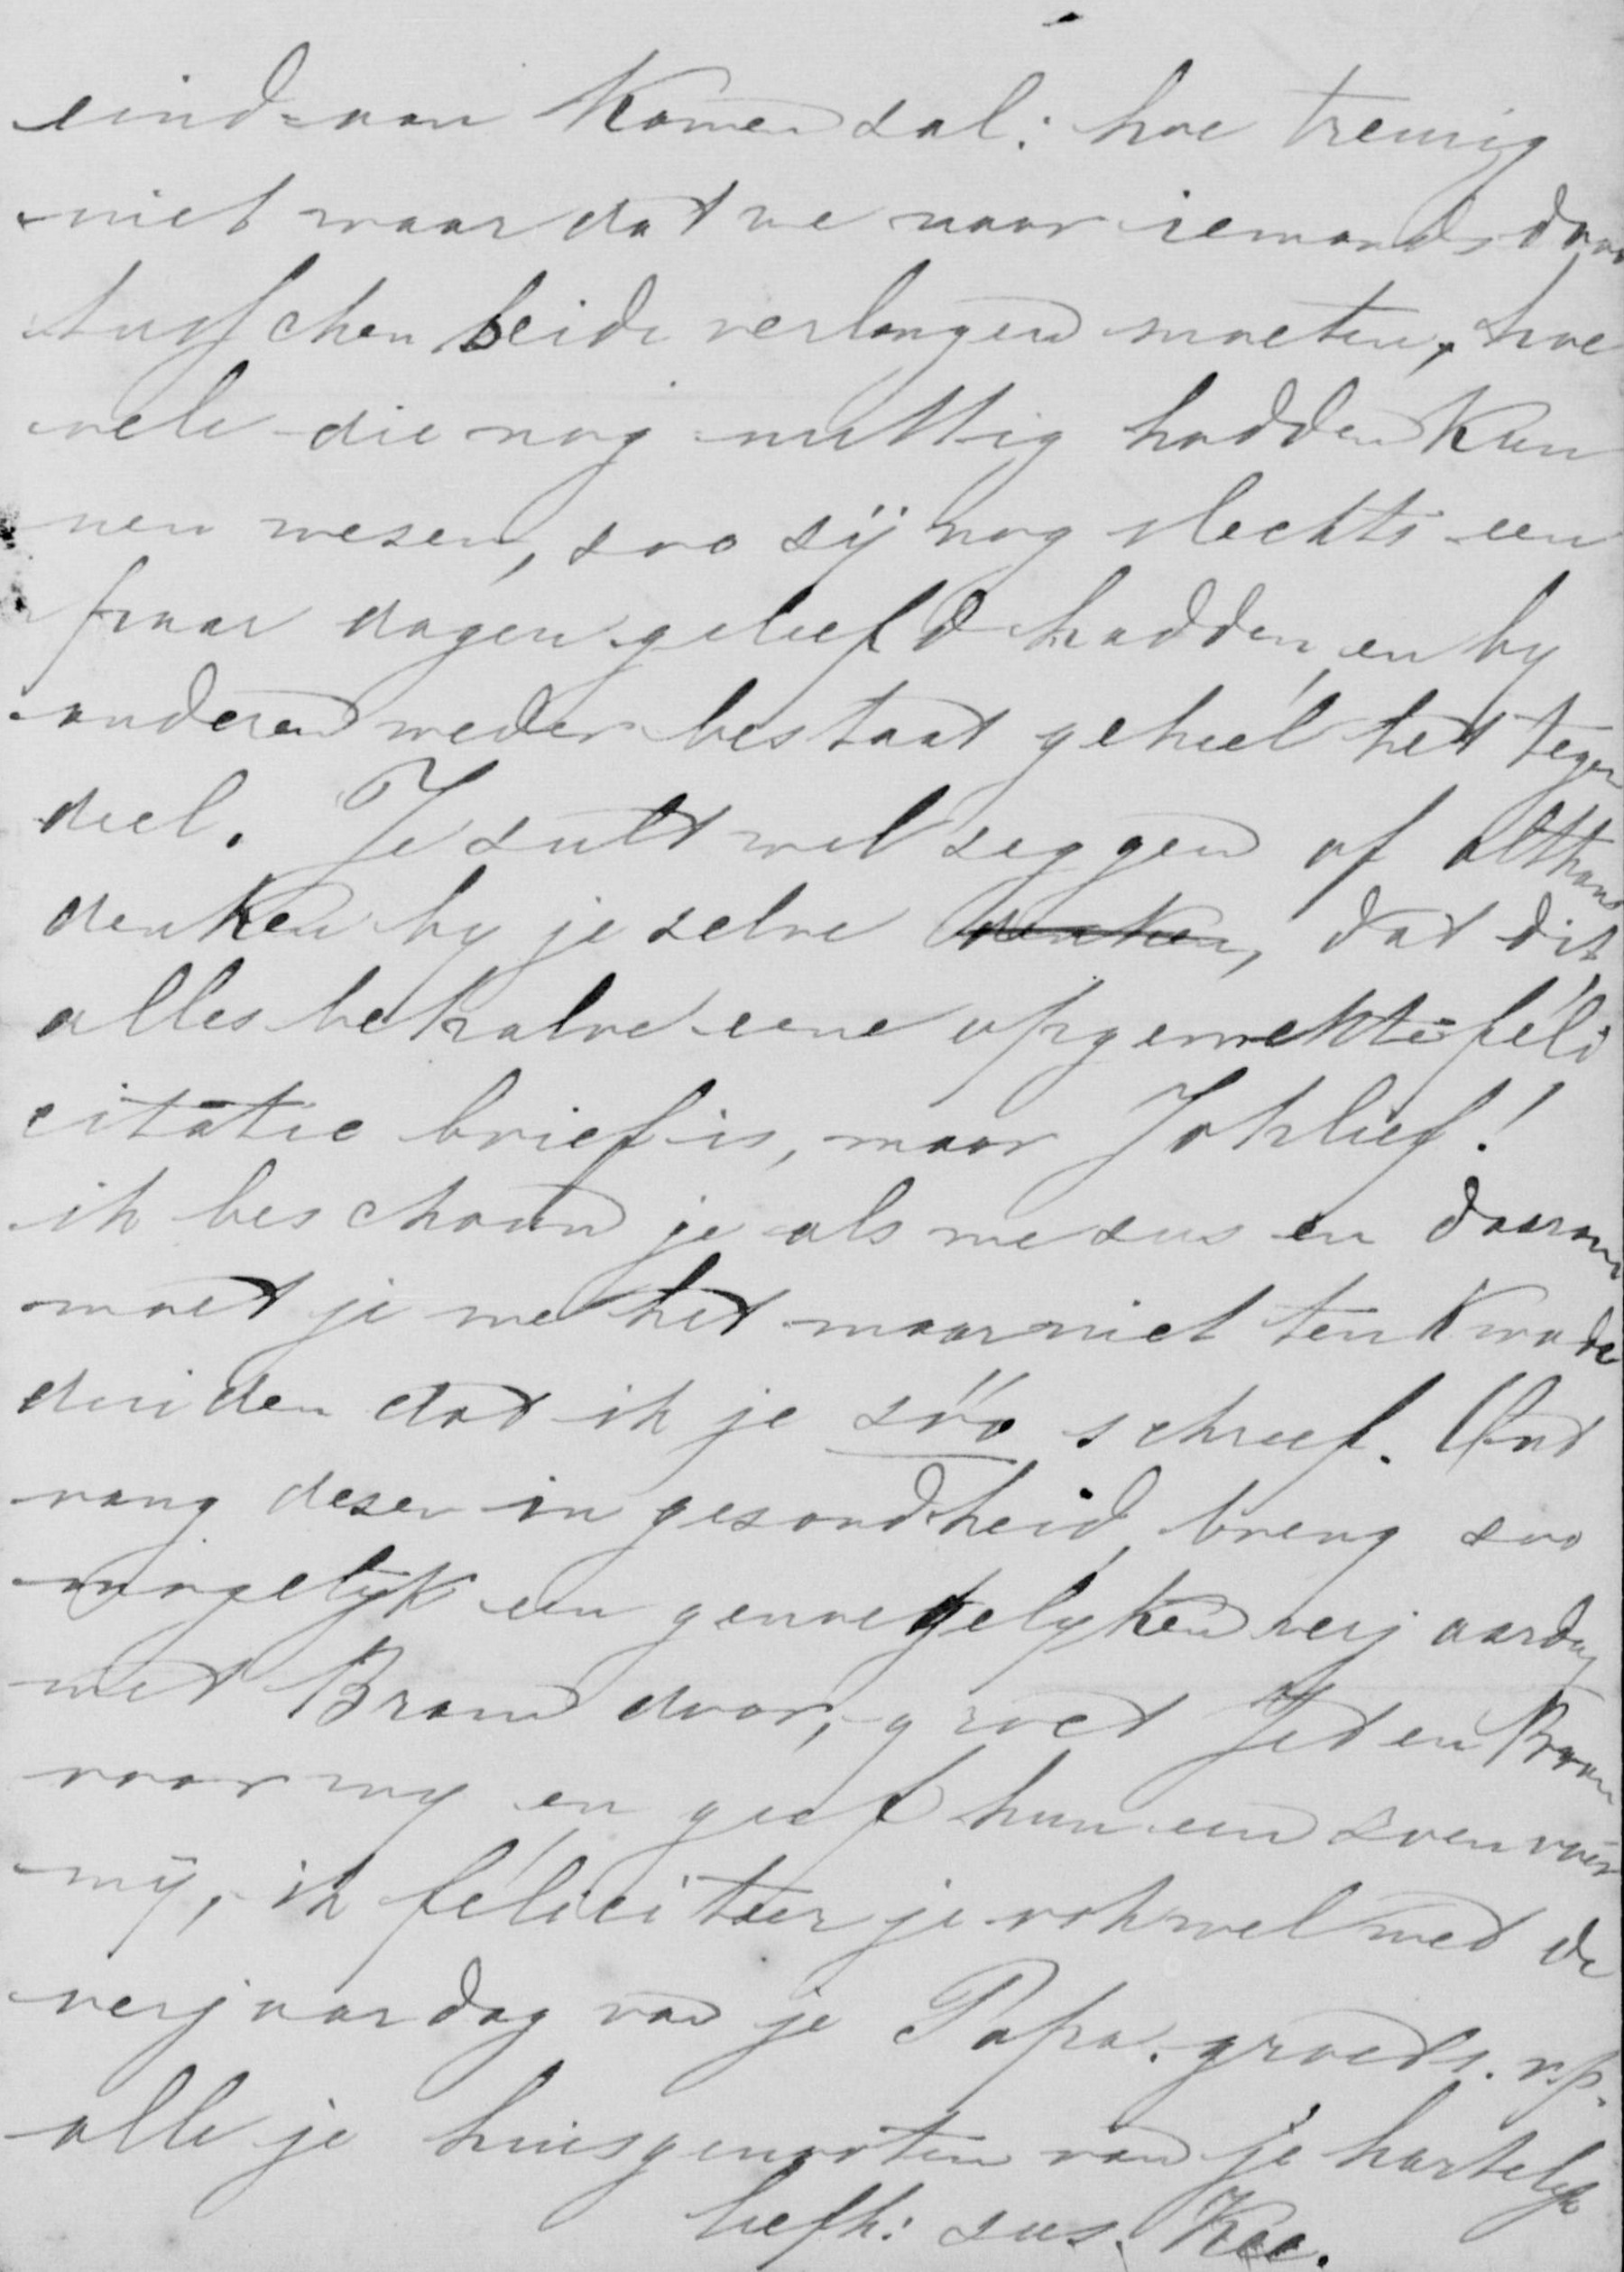 eind aan komen zal: hoe treurig
niet waar dat we naar iemands dood
tusschen beide verlangen moeten, hoe
vele die nog nuttig hadden kun
nen wesen, soo sij nog slechts een
paar dagen geleefd hadden, en by
anderen weder bestaat geheel het tegen
deel. Je sult wel seggen of althans
denken by je selve denken, dat dit
alles behalve eene opgewekte féli
citatie brief is, maar Johlief!
ik beschouw je als me sus en daarom
moet je me het maar niet ten kwade
duiden dat ik je soo schreef. Ont
vang deser in gesondheid, breng soo
mogelyk een genoegelyken verjaardag
met Bram door, groet Jet en Bram
voor my en geef hun een soen voor
mij, ik féliciteer je ook wel met de
verjaardag van je Papa. groets. v.p.
alle je huisgenooten van je hartelyk
liefh: sus. Kee.